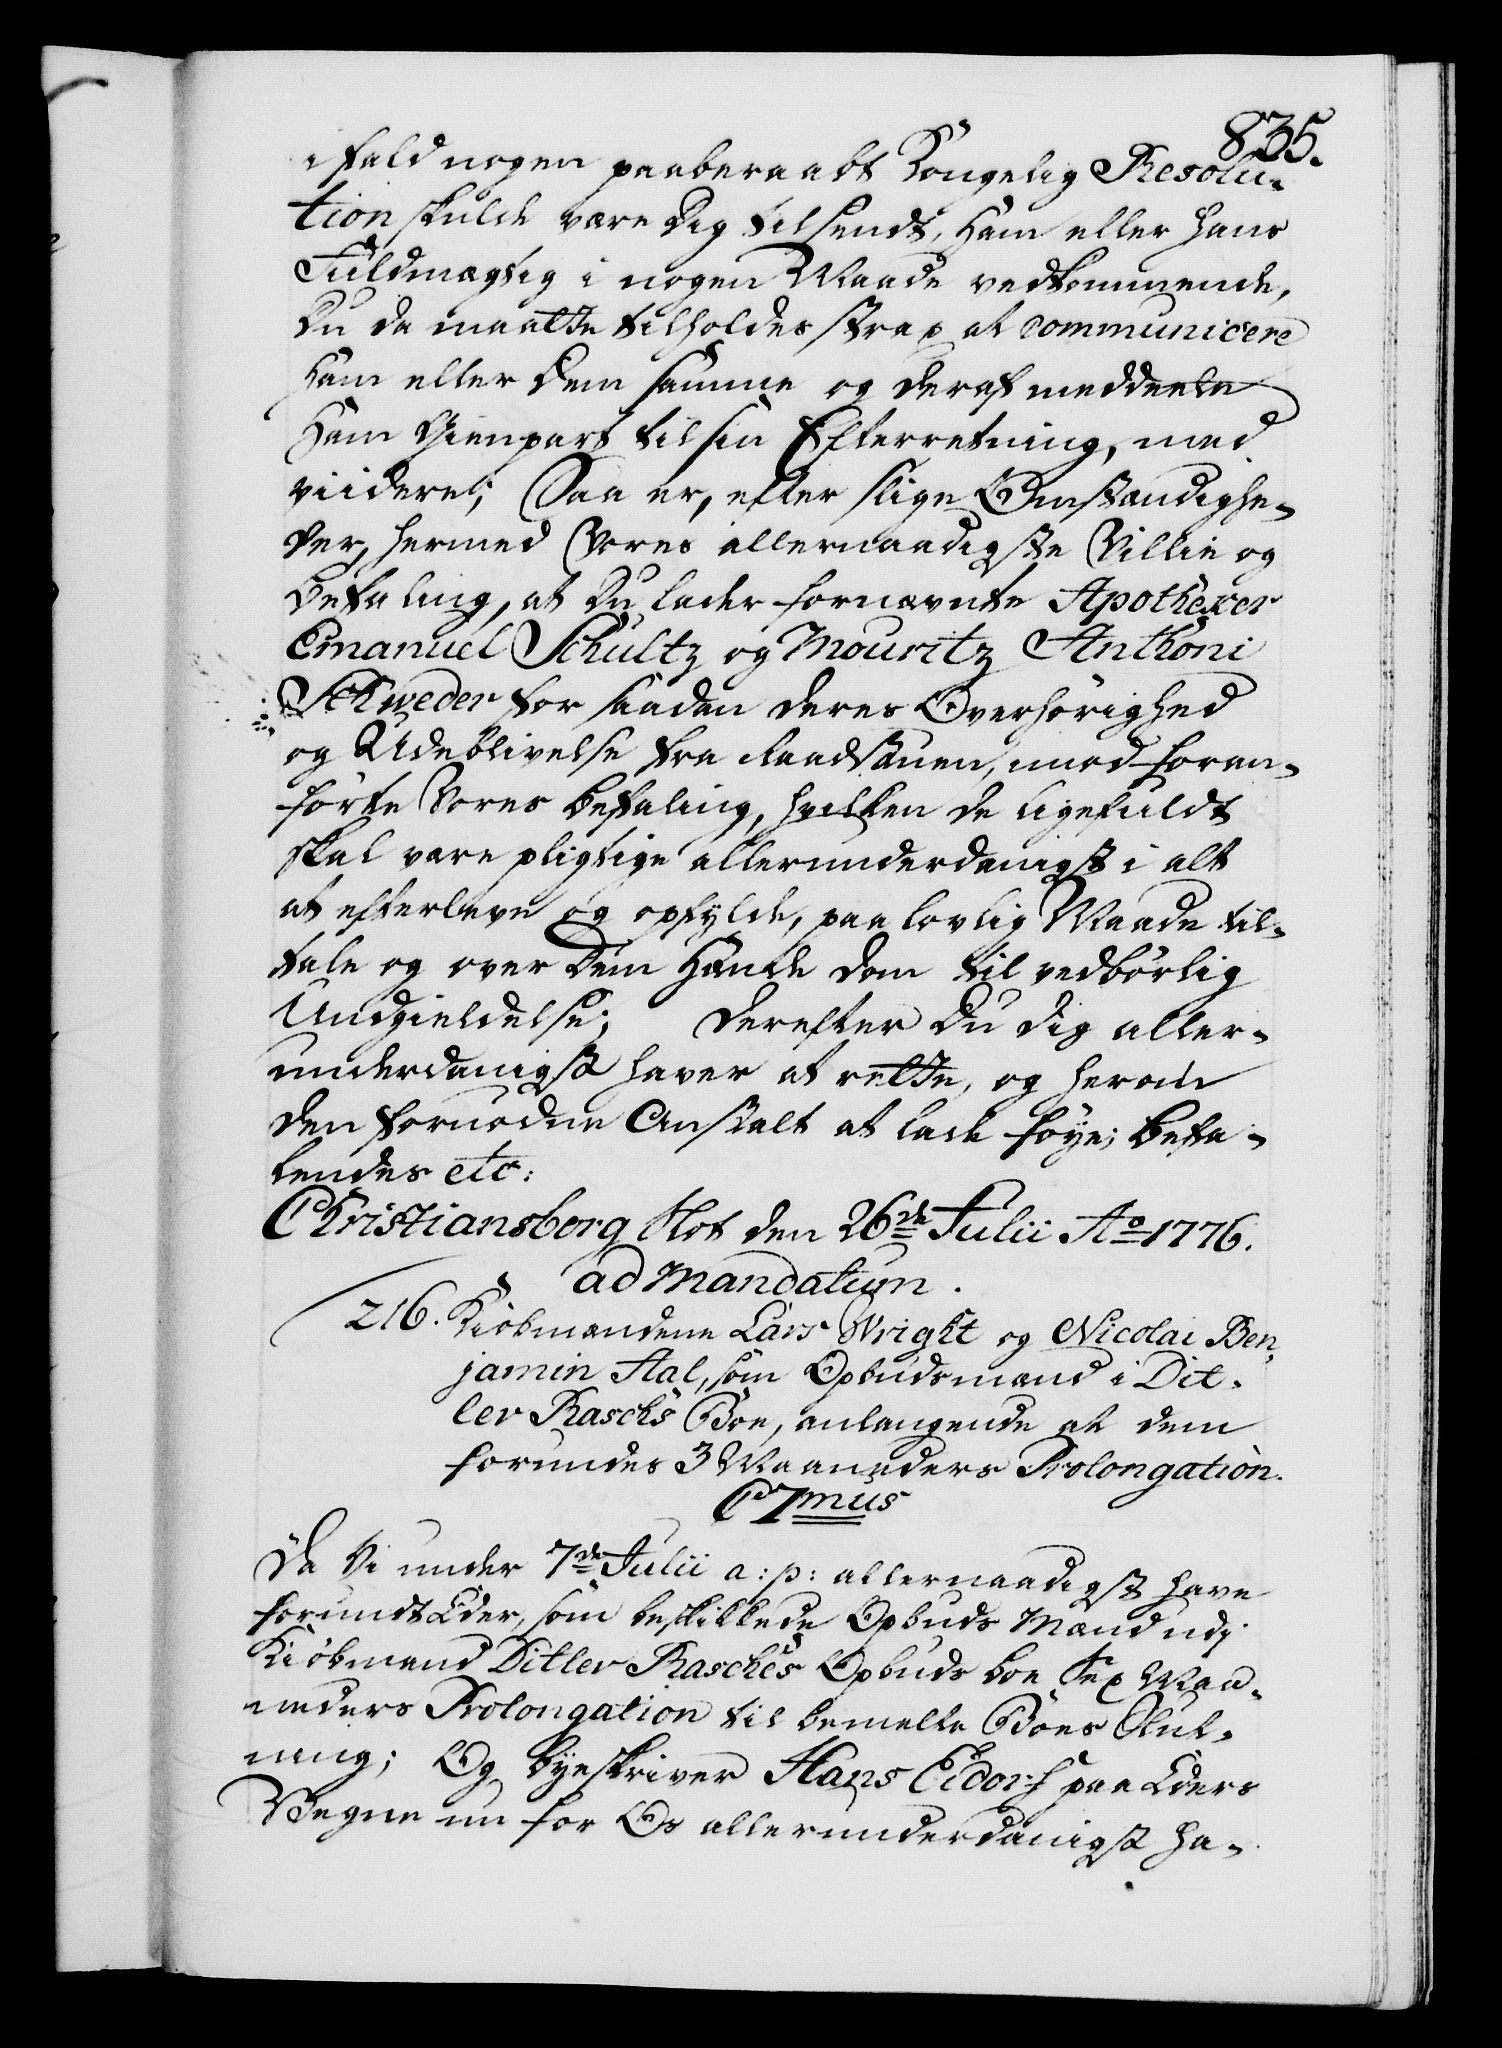 835.
ifald nogen paaberaabt Kongelig Resolu-
tion skulde være Dig tilsendt, ham eller hans
Fuldmægtig i nogen Maade vedkommende,
Du da maatte tilholdes strax at communicere
ham eller dem samme og deraf meddeele
ham Gienpart til sin Efterretning, med
viidere; Saa er, efter slige Omstændighe-
der, hermed Vores allernaadigste Villie og
Befaling, at Du lader fornævnte Apotheker
Emanuel Schultz og Mouritz Anthoni
Schweder for saadan deres Overhørighed
og Udeblivelse fra Raadstuen, mod foran-
førte Vores Befaling, hvilken de ligefuldt
skal være pligtige allerunderdanigst i alt
at efterleve og opfylde, paa lovlig Maade til-
tale og over dem hænde Dom til vedbørlig
Undgieldelse; Derefter Du Dig aller-
underdanigst haver at rette, og herom
den fornødne Anstalt at lade føye; Befa-
lendes etc:
Christiansborg Slot den 26de Julii Ao 1776.
ad Mandatum.
216. Kiøbmændene Lars Wright og Nicolai Ben-
jamin Aal, som Opbudsmænd i Dit-
lev Rasch's Boe, anlangende at dem
forundes 3 Maaneders Prolongation.
C 7mus
Da Vi under 7de Julii a: p: allernaadigst have
forundt Eder, som beskikkede Opbuds Mænd udj
Kiøbmand Ditlev Rasches Opbuds boe Sex Maa-
neders Prolongation til bemelte Boes Slut-
ning; Og Byeskriver Hans Eidorf paa Eders
Vegne nu for Os allerunderdanigst ha-